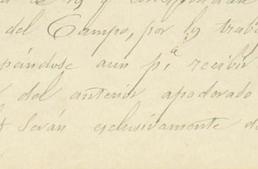 del Campo, por lo trab
pándose aun pª recibir
del anterior apoderado
serán esclusivamente d